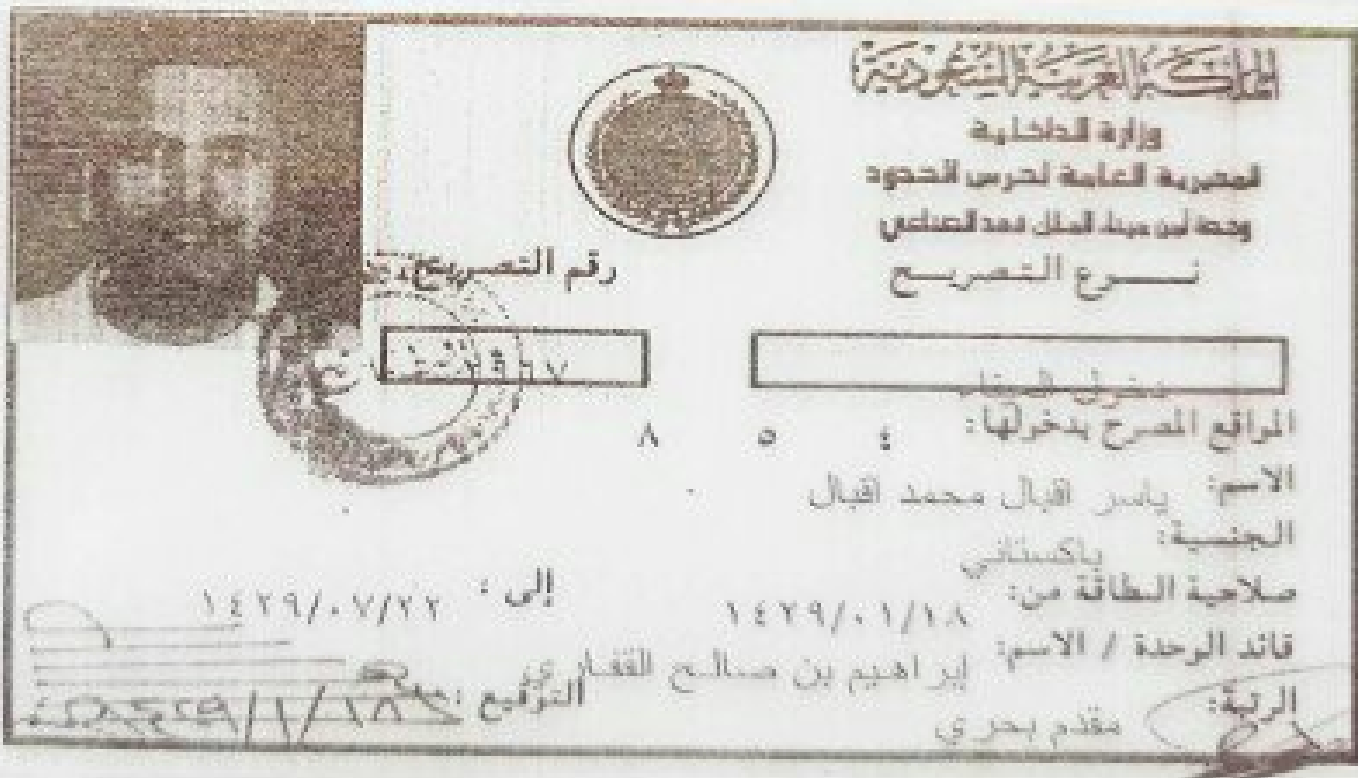 المملكة العربية السعودية
وزارة الداخلية
المديرية العامة لحرس الحدود
وحدة أمن ميناء الملك فهد الصناعي
نوع التصريح
رقم التصريح
دخول الميناء
المواقع المصرح بدخولها: ٤ ٥ ٨
الاسم: ياسر اقبال محمد اقبال
الجنسية: باكستاني
صلاحية البطاقة من: ١٤٢٩/٠١/١٨ إلى: ١٤٢٩/٠٧/٢٢
قائد الوحدة / الاسم: إبراهيم بن صالح القفاري
الرتبة: مقدم بحري التوقيع: